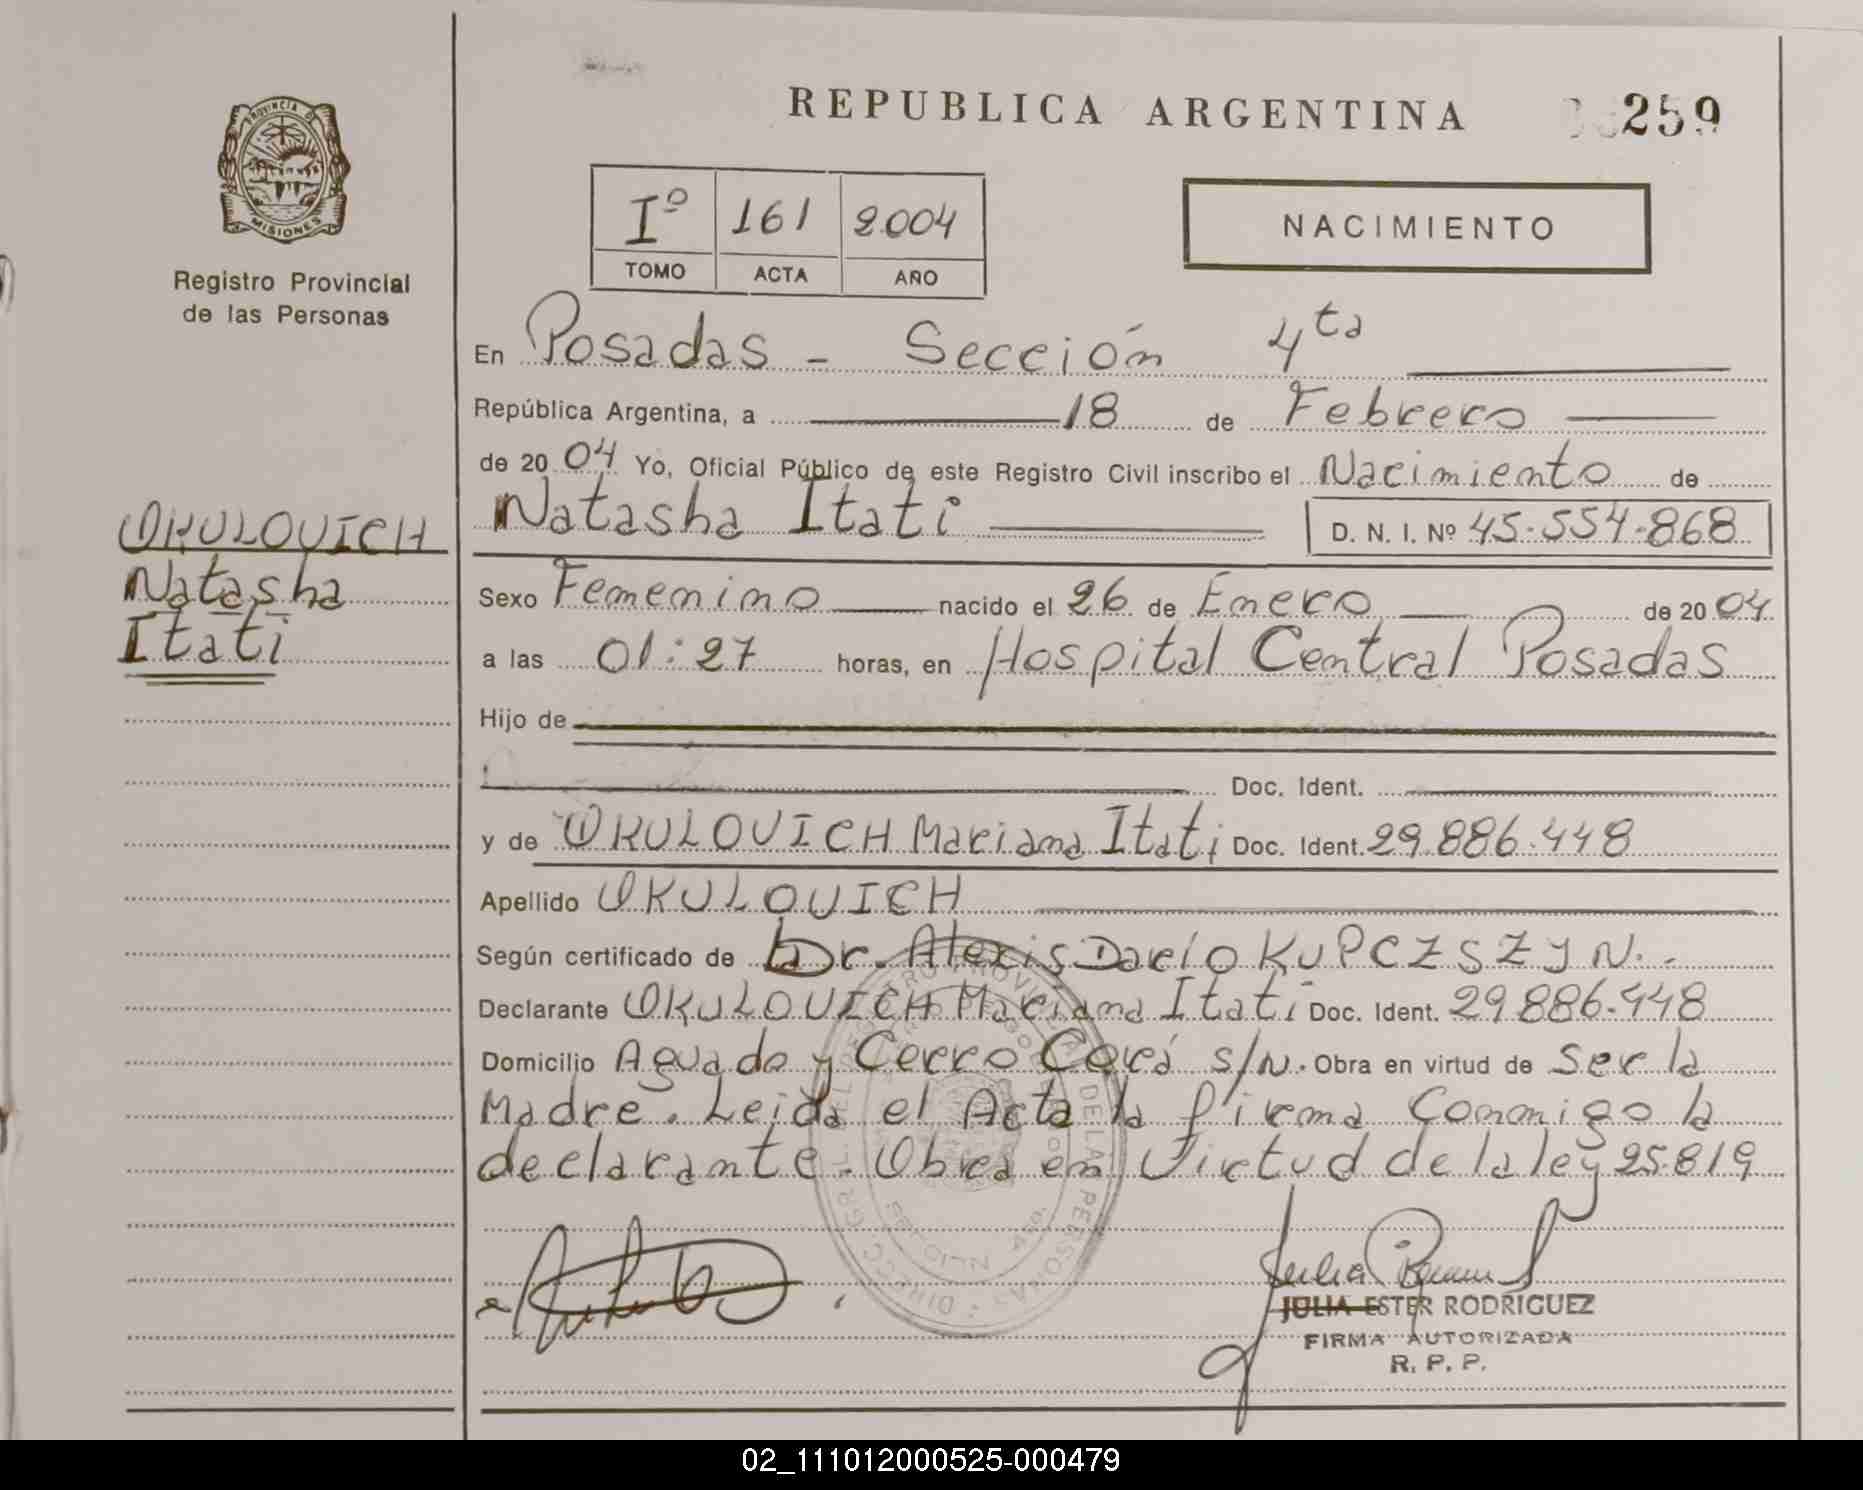 REPUBLICA ARGENTINA
259
PROVINCIA DE
MISIONES
Registro Provincial
de las Personas
Iº 161 2004
TOMO ACTA AÑO
NACIMIENTO
En Posadas - Sección 4ta
República Argentina, a 18 de Febrero
de 20 04 Yo, Oficial Público de este Registro Civil inscribo el Nacimiento de
Natasha Itati D. N. I. Nº 45.554.868
OKULOVICH
Natasha
Itati
Sexo Femenino nacido el 26 de Enero de 20 04
a las 01:27 horas, en Hospital Central Posadas
Hijo de
Doc. Ident.
y de OKULOVICH Mariana Itati Doc. Ident. 29.886.448
Apellido OKULOVICH
Según certificado de Dr. Alexis Dario KUPCZSZYN.-
Declarante OKULOVICH Mariana Itati Doc. Ident. 29.886.448
Domicilio Aguado y Cerro Corá s/N. Obra en virtud de Ser la
Madre. Leida el Acta la firma Conmigo la
declarante. Obra en Virtud de la ley 25.819
JULIA ESTER RODRIGUEZ
FIRMA AUTORIZADA
R. P. P.
02_111012000525-000479